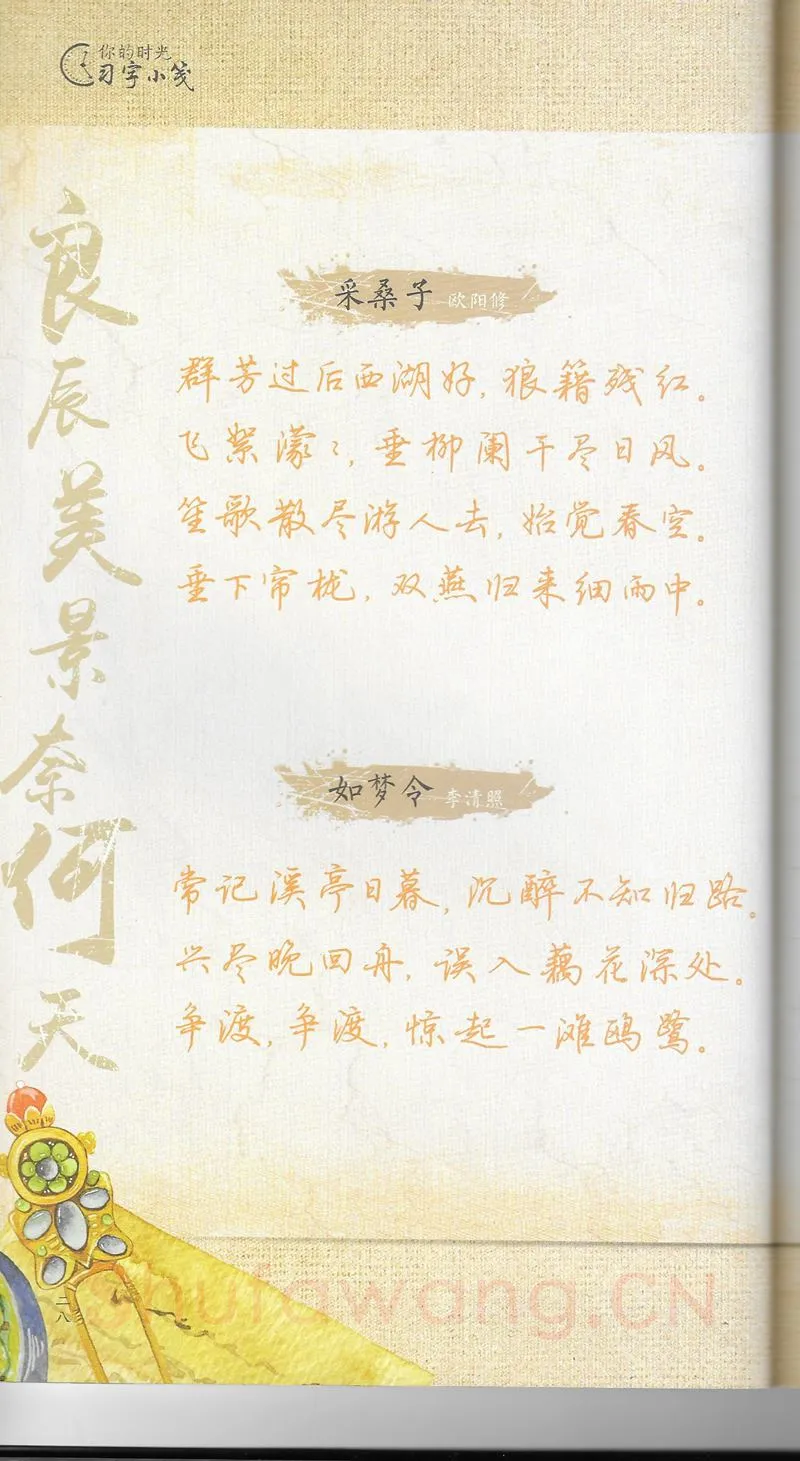 你的时光
习字小笺
良辰美景奈何天
采桑子 欧阳修
群芳过后西湖好,狼籍残红。
飞絮濛〻,垂柳阑干尽日风。
笙歌散尽游人去,始觉春空。
垂下帘栊,双燕归来细雨中。
如梦令 李清照
常记溪亭日暮,沉醉不知归路。
兴尽晚回舟,误入藕花深处。
争渡,争渡,惊起一滩鸥鹭。
二八
shufawang.CN